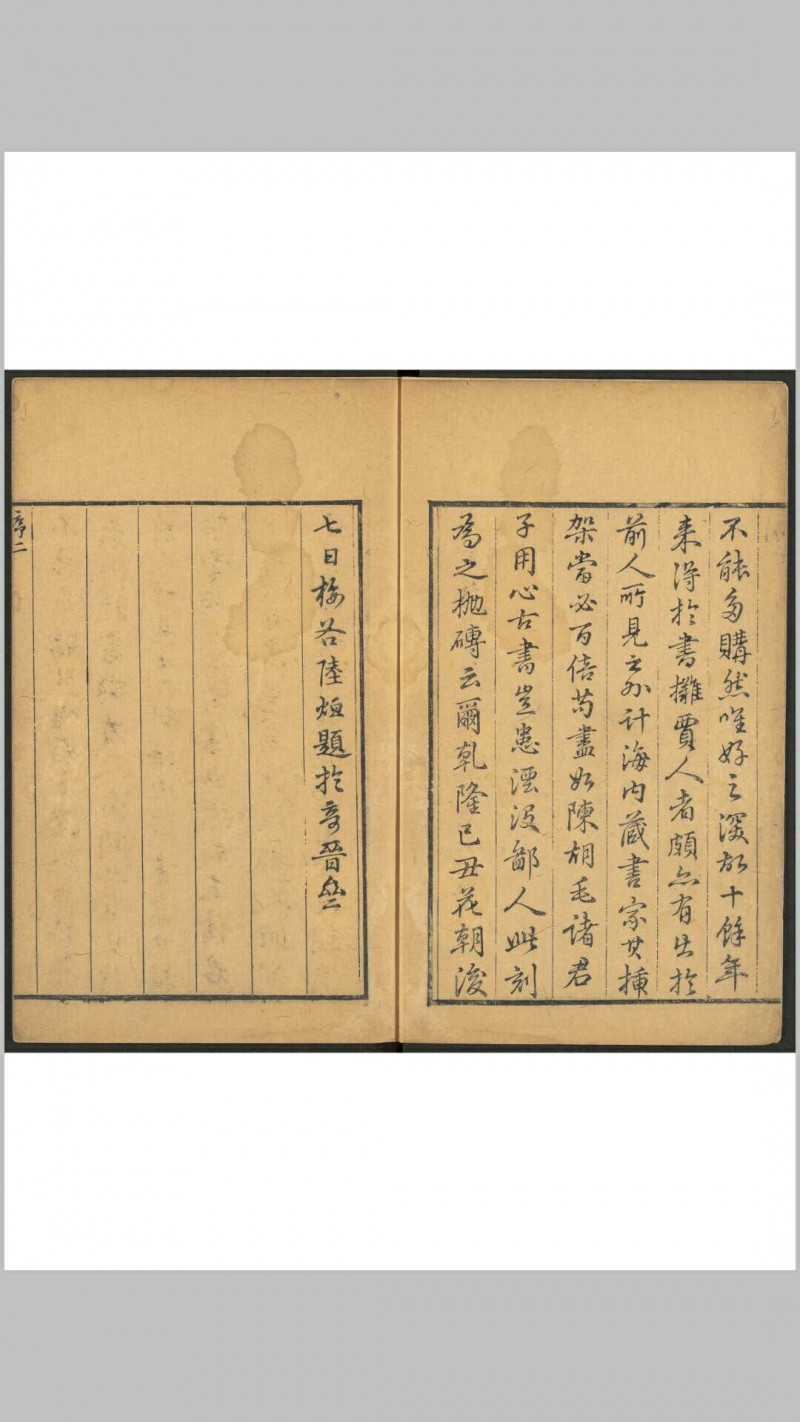 不能多購然唯好之深故十餘年
来得於書攤賈人者頗亦有出於
前人所見之外計海内蔵書家其揷
架當必百倍茍盡如陳胡毛諸君
子用心古書豈患湮没鄙人此刻
為之抛磚云爾乾隆已丑花朝後
七日梅谷陸烜題於奇晉齋
序二